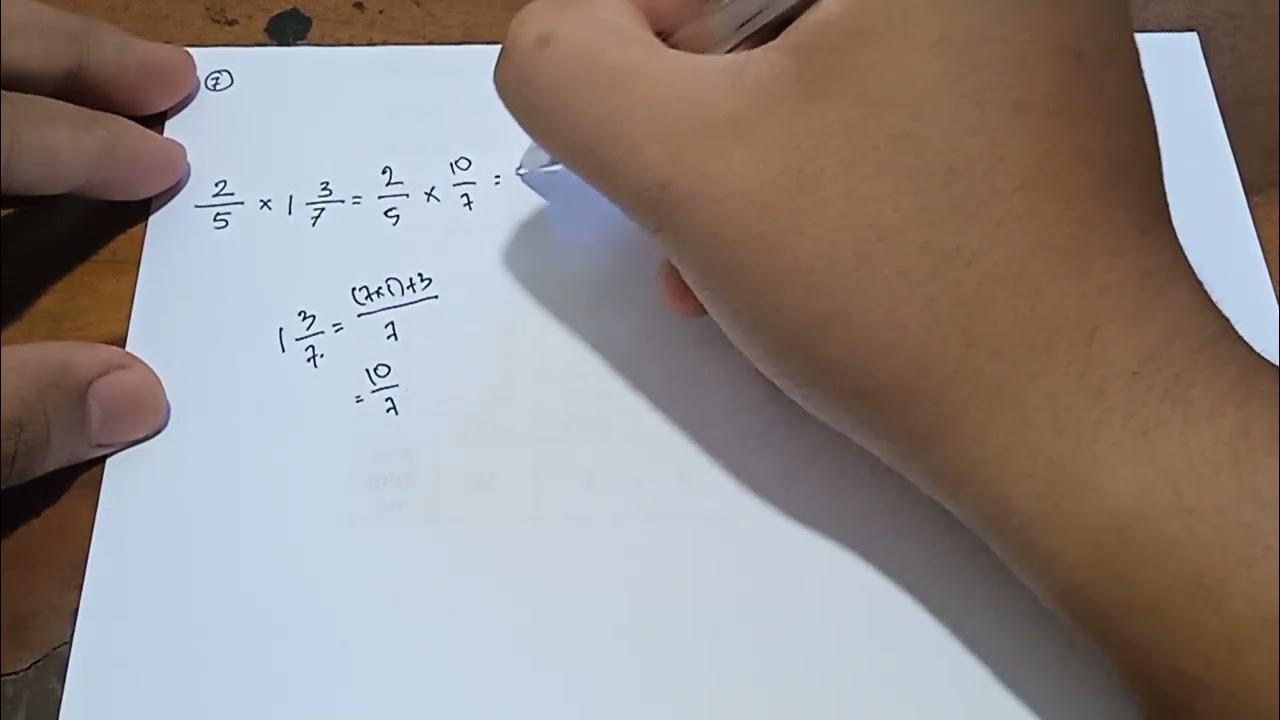 7
2/5 × 1 3/7 = 2/5 × 10/7 =
1 3/7 = (7×1)+3/7
= 10/7